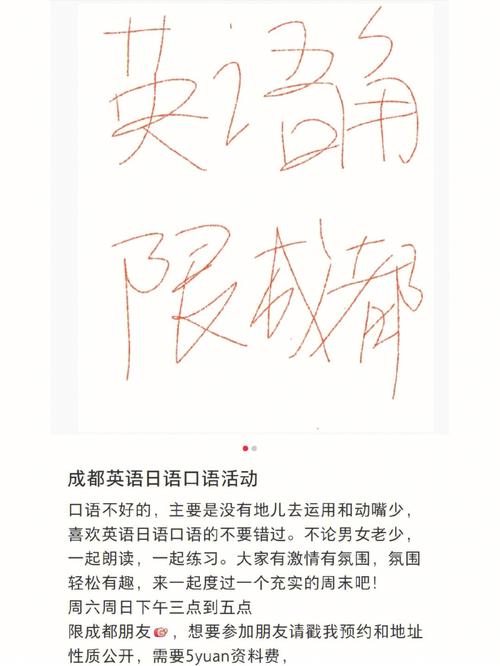 英语角
限成都
成都英语日语口语活动
口语不好的，主要是没有地儿去运用和动嘴少，
喜欢英语日语口语的不要错过。不论男女老少，
一起朗读，一起练习。大家有激情有氛围，氛围
轻松有趣，来一起度过一个充实的周末吧！
周六周日下午三点到五点
限成都朋友，想要参加朋友请戳我预约和地址
性质公开，需要5yuan资料费，